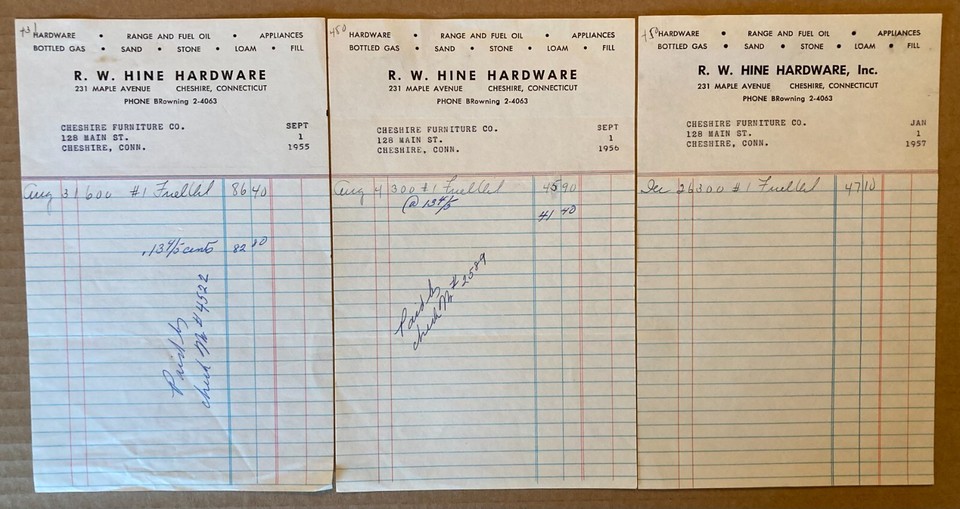 HARDWARE • RANGE AND FUEL OIL • APPLIANCES
BOTTLED GAS • SAND • STONE • LOAM • FILL
R. W. HINE HARDWARE
231 MAPLE AVENUE CHESHIRE, CONNECTICUT
PHONE BRowning 2-4063
CHESHIRE FURNITURE CO. SEPT
128 MAIN ST. 1
CHESHIRE, CONN. 1955
Aug 31 600 #1 Fuel Oil 86 40
.13 4/5 cents 82 80
Paid by
check No #4522
450
HARDWARE • RANGE AND FUEL OIL • APPLIANCES
BOTTLED GAS • SAND • STONE • LOAM • FILL
R. W. HINE HARDWARE
231 MAPLE AVENUE CHESHIRE, CONNECTICUT
PHONE BRowning 2-4063
CHESHIRE FURNITURE CO. SEPT
128 MAIN ST. 1
CHESHIRE, CONN. 1956
Aug 4 300 #1 Fuel Oil 45 90
@ 13 4/5
41 40
Paid by
check No #2589
HARDWARE • RANGE AND FUEL OIL • APPLIANCES
BOTTLED GAS • SAND • STONE • LOAM • FILL
R. W. HINE HARDWARE, Inc.
231 MAPLE AVENUE CHESHIRE, CONNECTICUT
PHONE BRowning 2-4063
CHESHIRE FURNITURE CO. JAN
128 MAIN ST. 1
CHESHIRE, CONN. 1957
26 300 #1 Fuel Oil 47 10